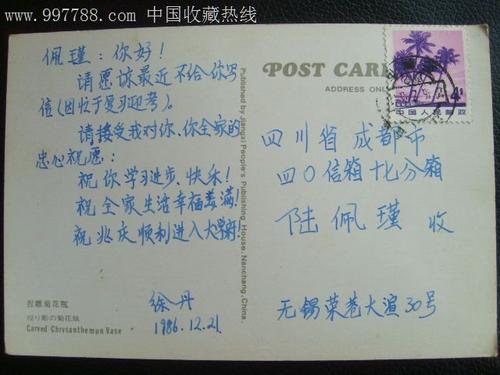 www.997788.com 中国收藏热线
佩瑾：你好！
请愿谅最近不给你写
信（因忙于复习迎考）。
请接受我对你、你全家的
忠心祝愿：
祝你学习进步、快乐！
祝全家生活幸福美满！
祝兆庆顺利进入大学府！
徐丹
1986.12.21.
哲雕菊花瓶
彫り彫の菊花瓶
Carved Chrysanthemum Vase
Published by Jiangxi People's Publishing House, Nanchang, China.
POST CARD
ADDRESS ONLY
4分
中国人民邮政
四川省成都市
四〇信箱十七分箱
陆佩瑾 收
无锡荣巷大渲30号